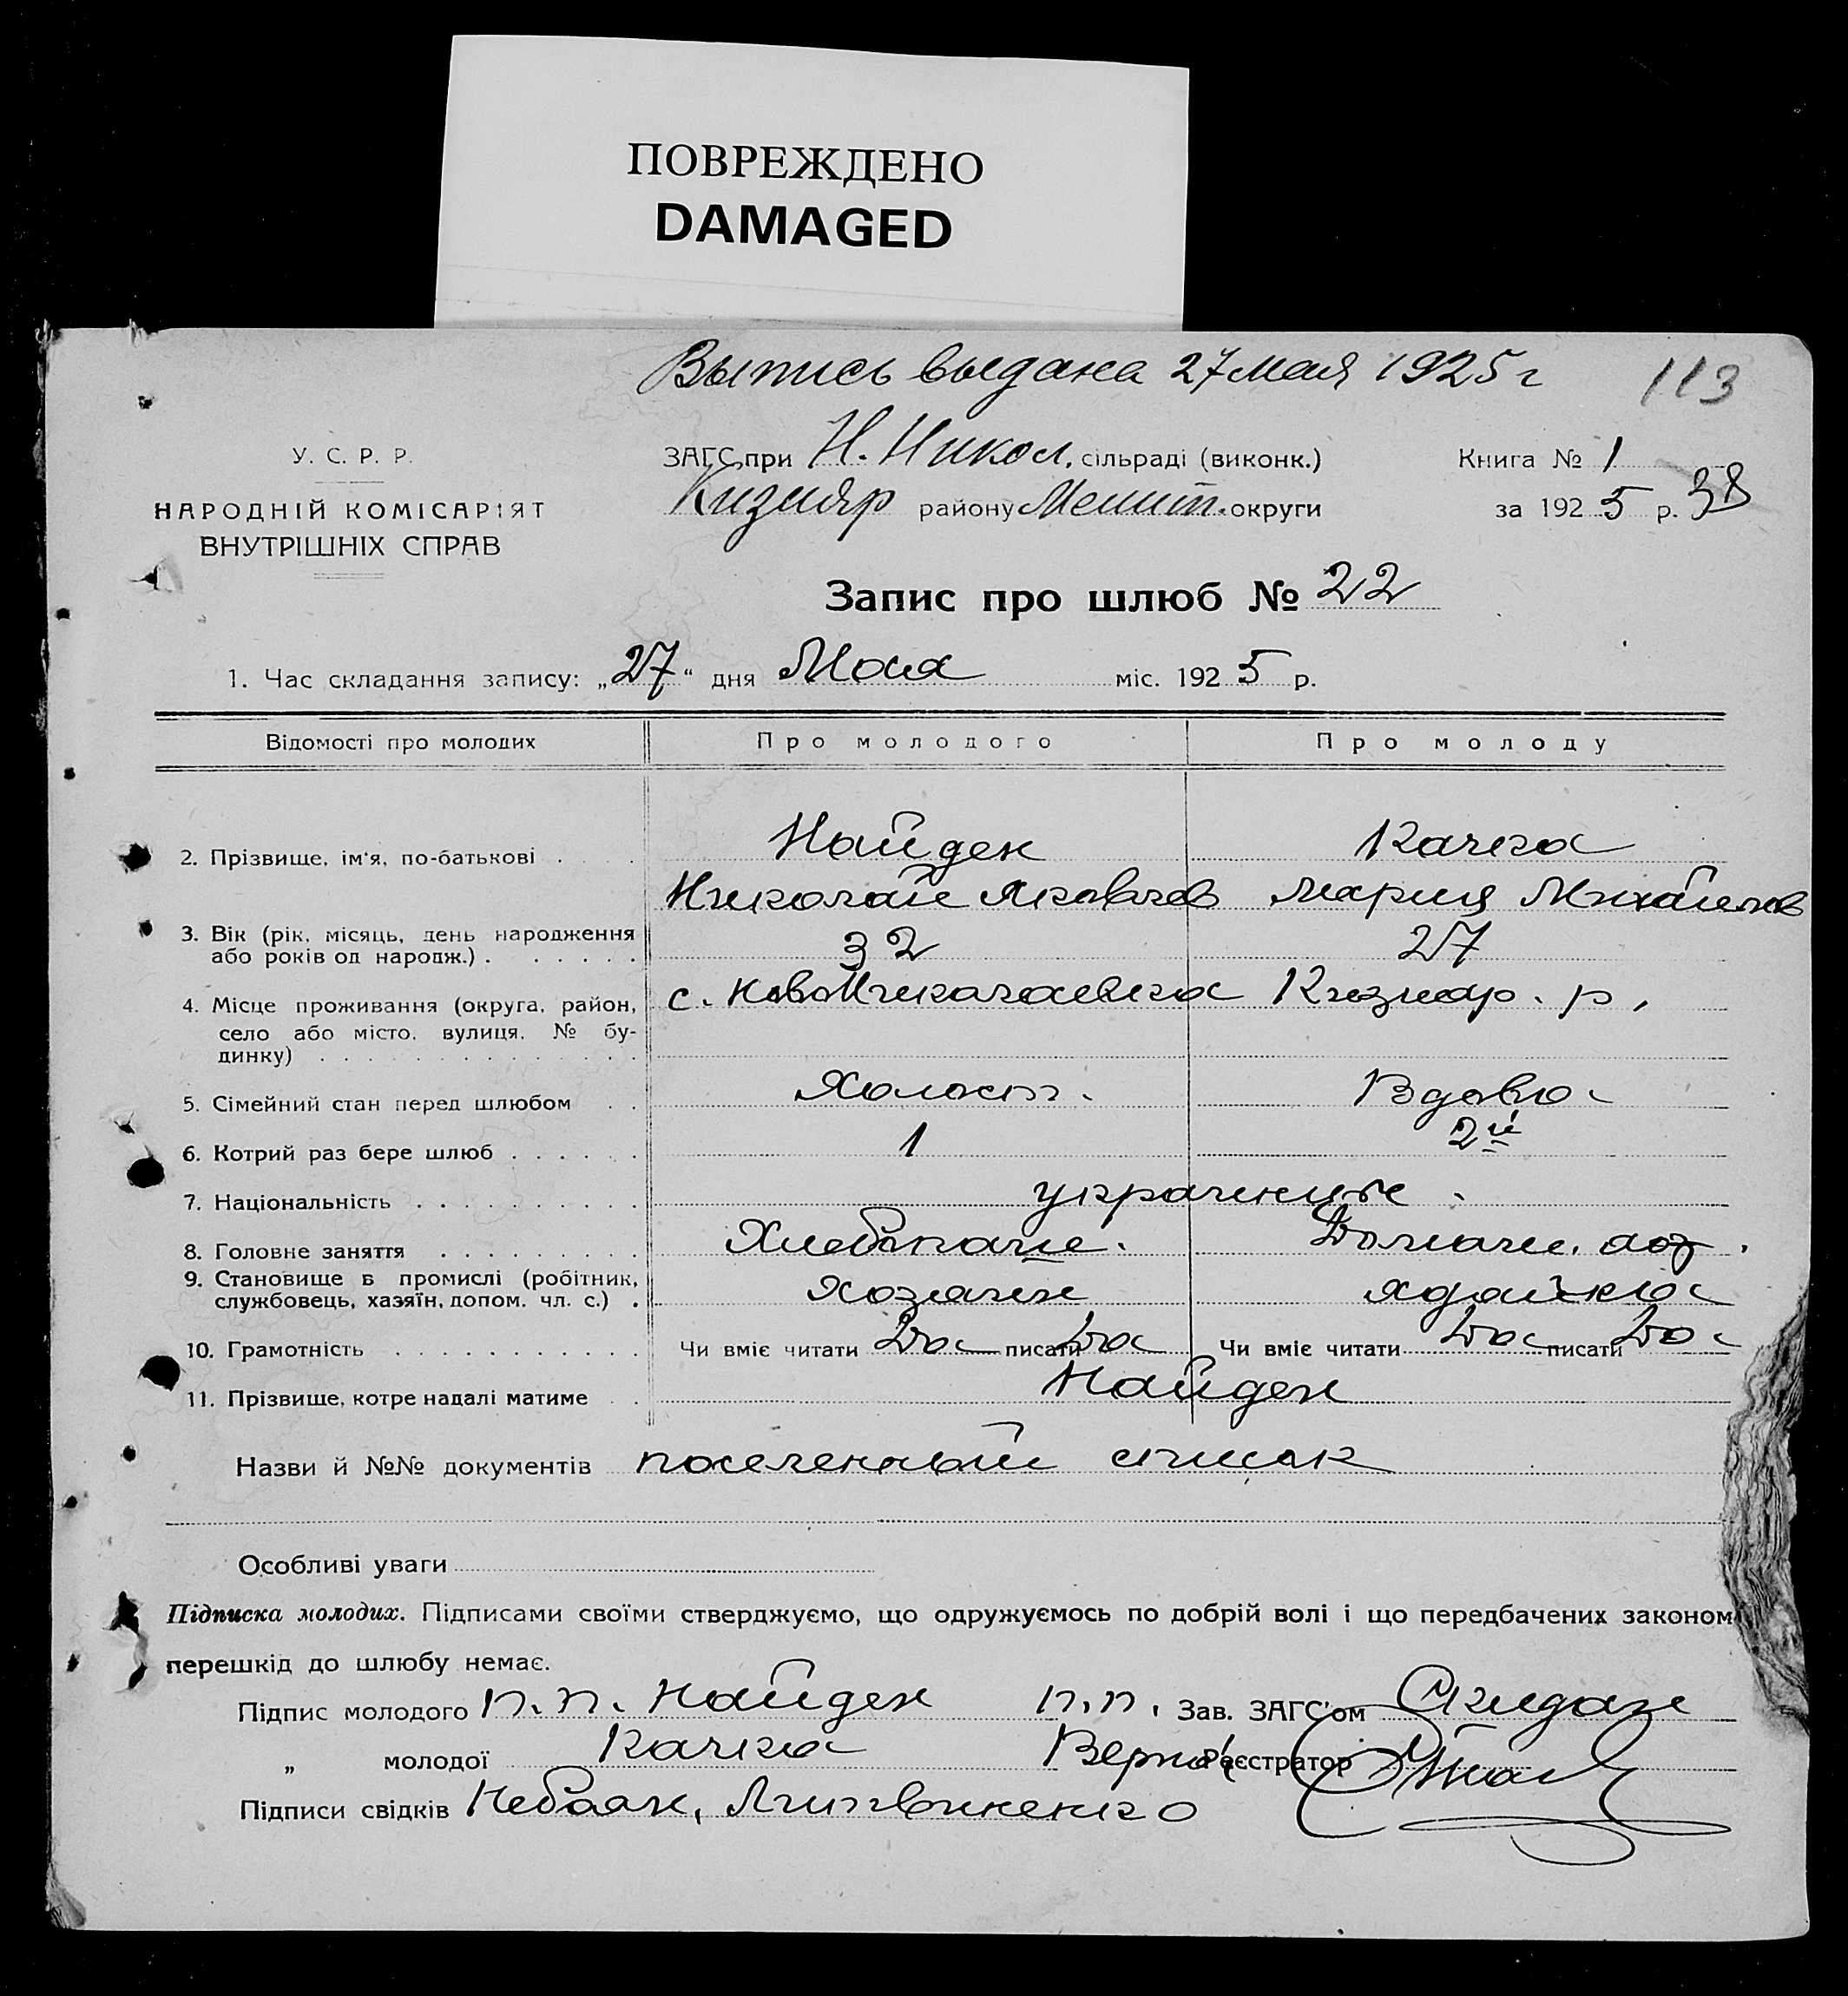 ПОВРЕЖДЕНО
DAMAGED
Выпись выдана 27 мая 1925 г
113
У. С. Р. Р.
НАРОДНІЙ КОМІСАРІЯТ
ВНУТРІШНІХ СПРАВ
ЗАГС при Н. Никол. сільраді (виконк.)
Кизияр району Мелит. округи
Книга № 1
за 1925 р. 38
Запис про шлюб № 22
1. Час складання запису: „27“ дня Мая міс. 1925 р.
Відомості про молодих Про молодого Про молоду
2. Прізвище, ім'я, по-батькові . . . Найден Качка
Николай Яковлев Мария Михайлов
3. Вік (рік, місяць, день народження
або років од народж.) . . . . . . 32 27
4. Місце проживання (округа, район, с. НовоНиколаевка Кизияр. р.
село або місто, вулиця, № бу-
динку) . . . . . . . . . . . .
5. Сімейний стан перед шлюбом . . Холост. Вдова
6. Котрий раз бере шлюб . . . . . . 1 2й
7. Національність . . . . . . . . . . украинцы.
8. Головне заняття . . . . . . . . . Хлебопаш. Домашн. хоз.
9. Становище в промислі (робітник,
службовець, хазяїн, допом. чл. с.) . Хозяин
10. Грамотність . . . . . . . . . . . Чи вміє читати Да писати Да Чи вміє читати Да писати Да
11. Прізвище, котре надалі матиме . . Найден
Назви й №№ документів поселенный список
Особливі уваги
Підписка молодих. Підписами своїми стверджуємо, що одружуємось по добрій волі і що передбачених законом
перешкід до шлюбу немає.
Підпис молодого п.п. Найден п.п. Зав. ЗАГС'ом
„ молодої Качка Верно: Реєстратор
Підписи свідків Литвиненко